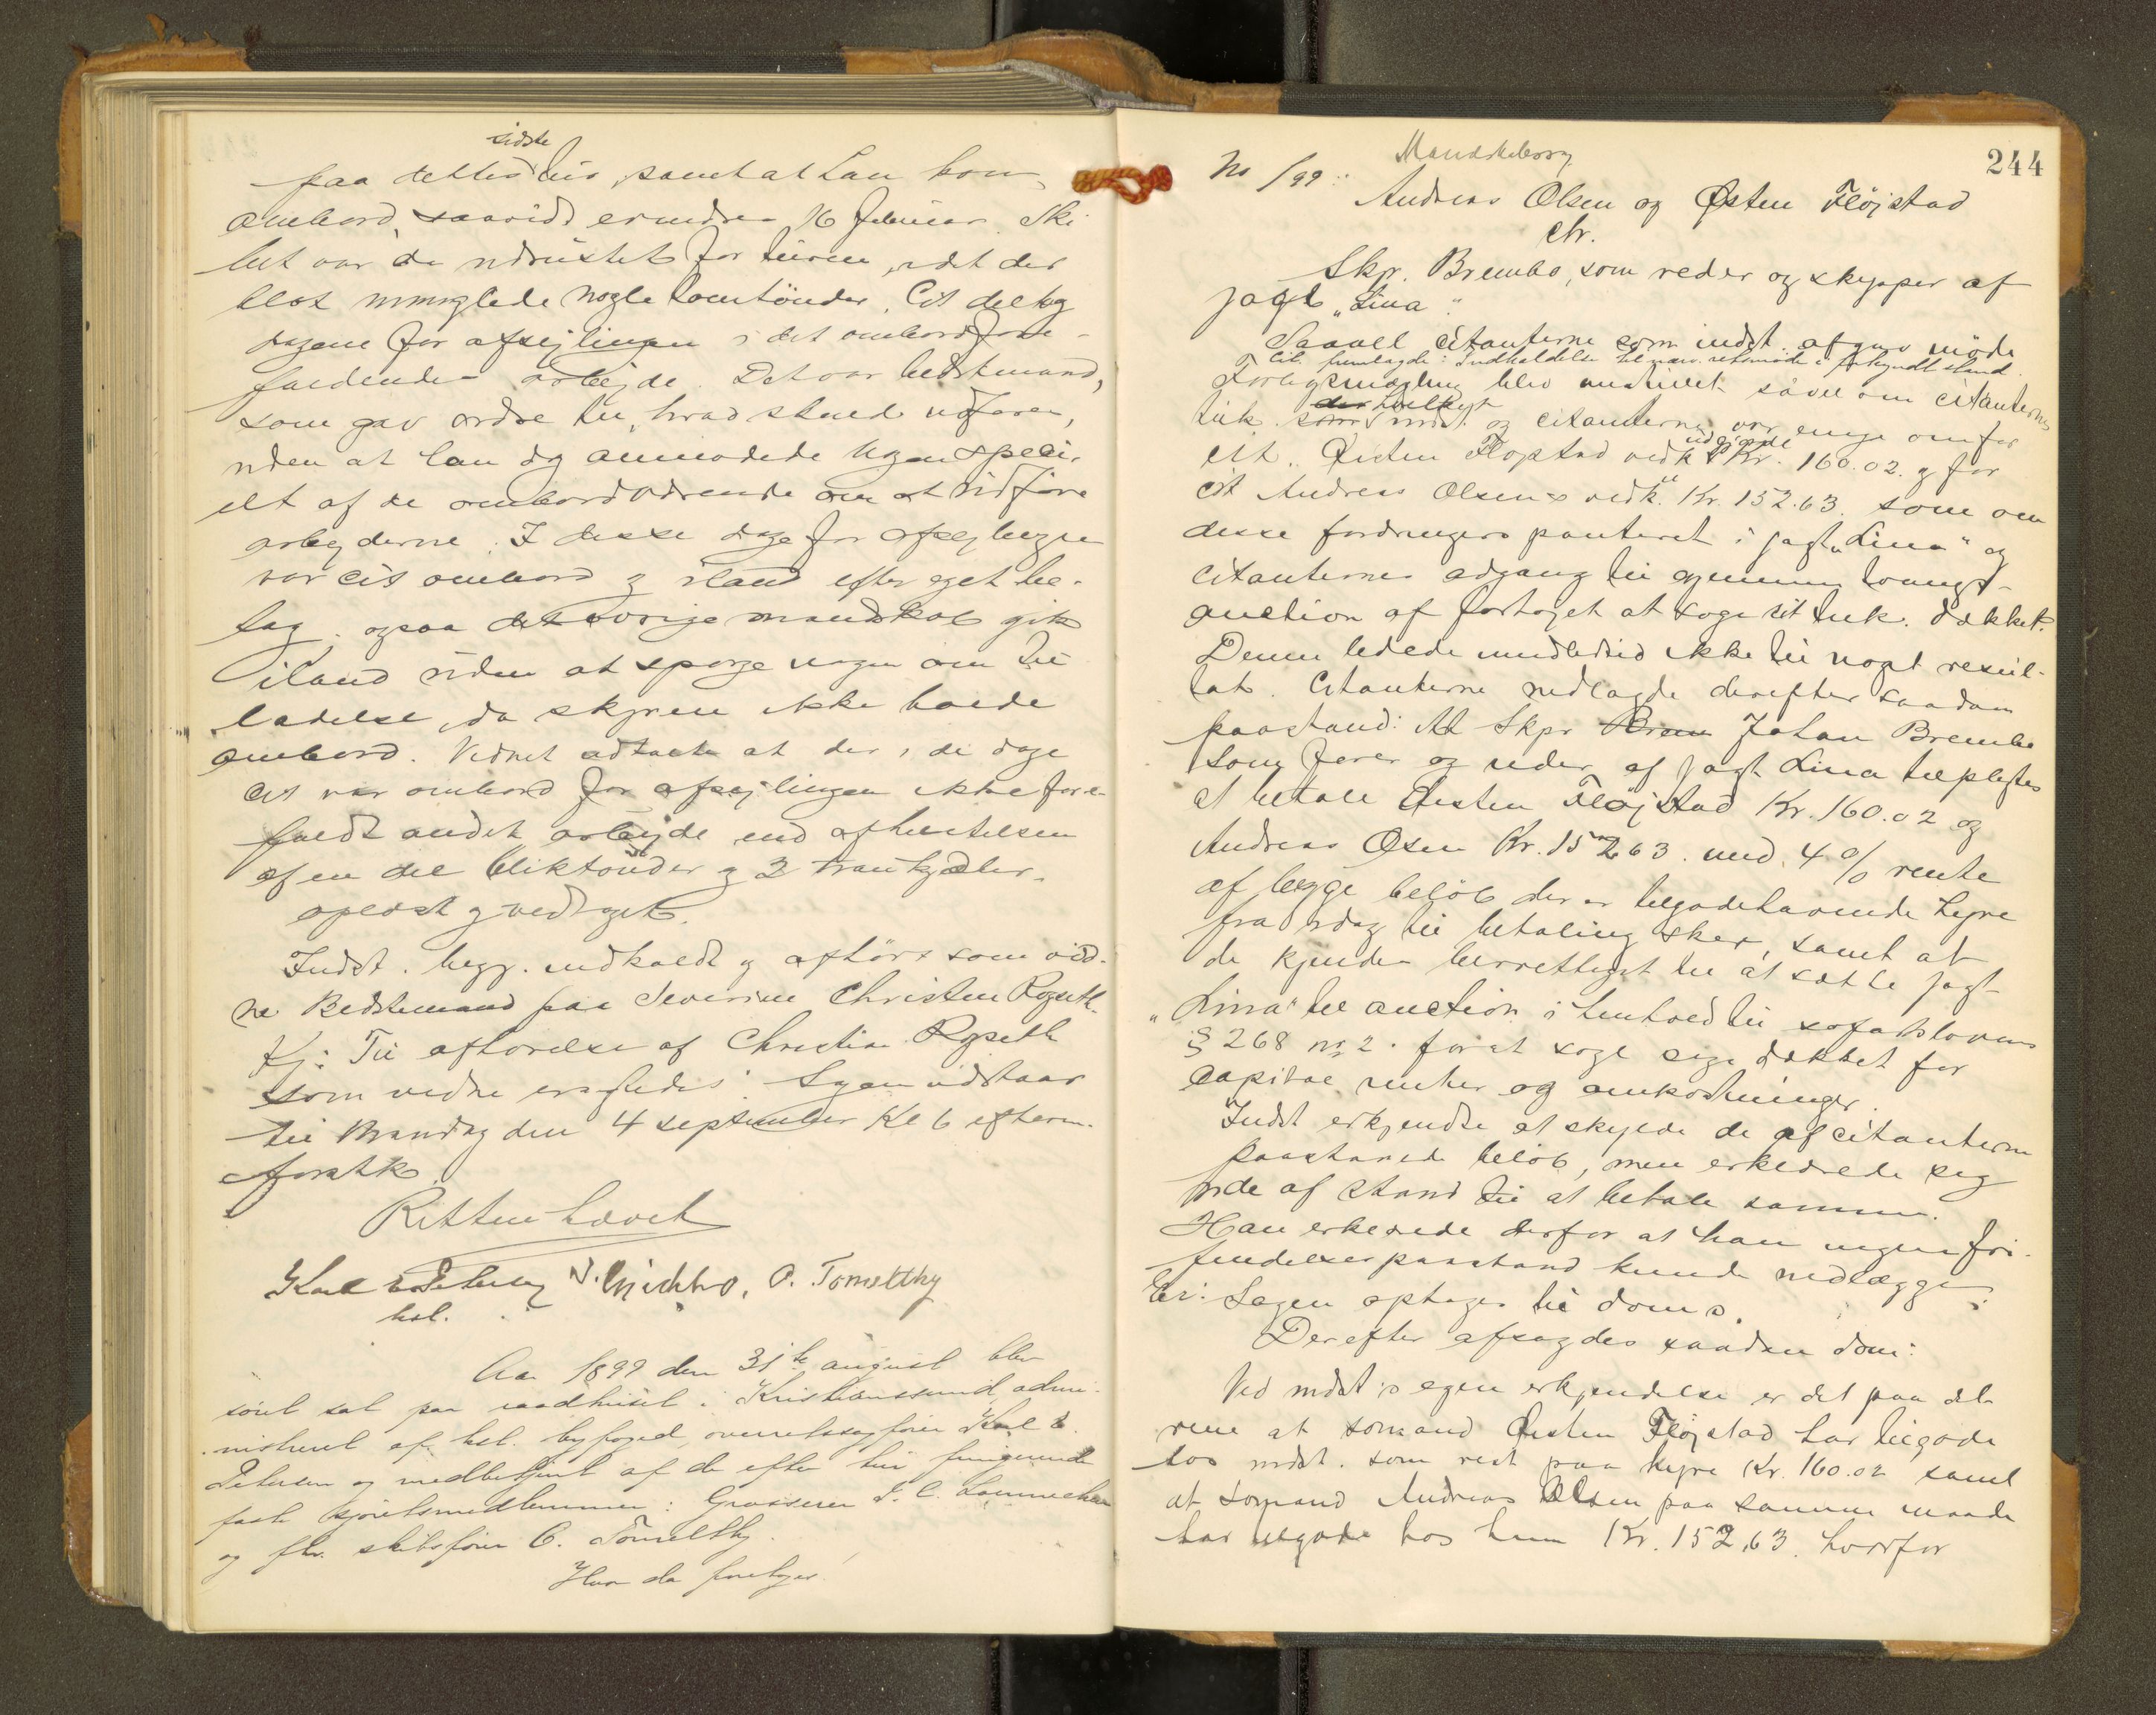 sidste
paa dettes hus, samt at han kom
ombord, saavidt erindres 16 februar. Ski
bet var da udrustet for turen, idet der
blot manglede nogle tomtönder. Cit. deltog
dagene før afsejlingen i det ombord fore-
faldende arbejde. Det var bedstmand,
som gav ordre til, hvad skulde udføres,
uden at han dog anmodede nogen speci-
elt af de ombordværende om at udføre
arbejderne. I disse dage før afsejlingen
var cit ombord og iland efter eget be-
hag, ogsaa det øvrige mandskab gik
iland uden at spørge nogen om til-
ladelse, da skipperen ikke havde
ombord. Vidnet udtalte at der i de dage
cit var ombord før afsejlingen ikke fore-
faldt andet arbejde end afhentelsen
af en del bliktönder og 2 trankjedler
Indst. begj. indkaldt og afhørt som vid-
ne Bedstemand paa Severine Christen Rogseth.
Kj: Til afhørelse af Christian Rogseth
som vidne Sagen udstaar
til Mandag den 4 september Kl 6 efterm.
Ritten hævet
Karl Petersen N. O. Tomelthy
kst.
Aar 1899 den 31te august blev
söret sat paa raadhuset i Kristianssund, admi-
nistreret af kst. byfoged, overretssagfører Karl
Petersen og medbetjent af de efter tur fungerende
faste sjøretsmedlemmer: Grosserer
og fhv. skibsfører O. Tomelthy.
Hvor da foretoges
244
No /99: Mandskaberg
Andreas Olsen og Østen Fløjstad
ctr.
Skpr. Brembo, som reder og skipper af
jagt "Lina".
Saavel citanterne som indst. afgav møde
Cit. fremlagde: Indkaldelse til nærv. retsmøde i forkyndt stand.
Forligsmægling blev anstillet såvel om citanternes
der hvilket
tilk. som indst. og citanterne var enige om for
udgjorde
cit. Østen Fløjstad vedk. Kr. 160.02. og for
cit Andreas Olsens vedk. Kr. 152.63. som om
disse fordringers panteret i jagt "Lina" og
citanternes adgang til gjennem tvangs-
auction af fartøjet at søge sit tilk. dækket.
Denne ledede imidlertid ikke til noget resul-
tat. Citanterne nedlagde derefter saadan
paastand: At Skpr Brem Johan Brembo
som fører og reder af jagt Lina tilpligtes
at betale Østen Fløjstad Kr. 160.02 og
Andreas Olsen Kr. 152.63. med 4 % rente
af begge beløb der er tilgodehavende hyre
fra idag til betaling sker, samt at
de kjendes berettiget til at sætte jagt
"Lina" til auction i henhold til søfartslovens
§ 268 no 2. for at søge sige dækket for
capital renter og omkostninger.
Indst erkjendte at skylde de af citanterne
paastaaede beløb, men erklærede sig
ude af stand til at betale samme.
Han erklærede derfor at han ingen fri-
findelsespaastand kunde nedlægge.
Er: Sagen optages til doms.
Derefter afsagdes saadan dom:
Ved indst:s egen erkjendelse er det paa det
rene at sømand Østen Fløjstad har tilgode
hos indst. som rest paa hyre Kr. 160.02 samt
at sømand Andreas Olsen paa samme maade
har tilgode hos ham Kr. 152.63. hvorfor